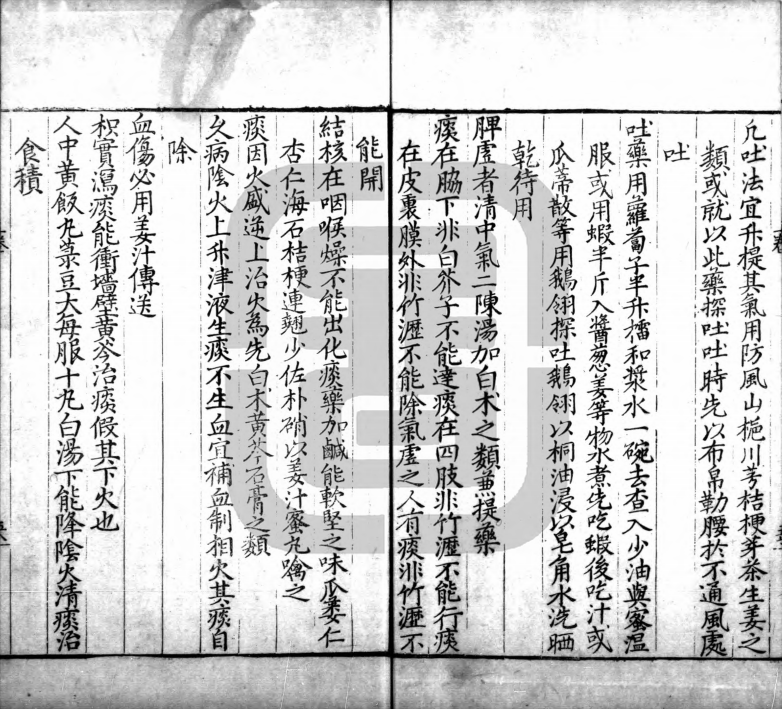 凡吐法宜升提其氣用防風山梔川芎桔梗芽茶生姜之
類或就以此藥探吐吐時先以布帛勒腰於不通風處
吐
吐藥用蘿蔔子半升擂和漿水一碗去查入少油與蜜温
服或用蝦半斤入醬葱姜等物水煮先吃蝦後吃汁或
瓜蒂散等用鵝翎探吐鵝翎以桐油浸以皂角水洗晒
乾待用
脾虛者清中氣二陳湯加白朮之類兼提藥
痰在脇下非白芥子不能達痰在四肢非竹瀝不能行痰
在皮裏膜外非竹瀝不能除氣虛之人有痰非竹瀝不
能開
結核在咽喉燥不能出化痰藥加鹹能軟堅之味瓜蔞仁
杏仁海石桔梗連翹少佐朴硝以姜汁蜜丸噙之
痰因火盛逆上治火為先白朮黃芩石膏之類
久病陰火上升津液生痰不生血宜補血制相火其痰自
除
血傷必用姜汁傳送
枳實瀉痰能衝墻壁黃芩治痰假其下火也
人中黃飯丸菉豆大每服十丸白湯下能降陰火清痰治
食積